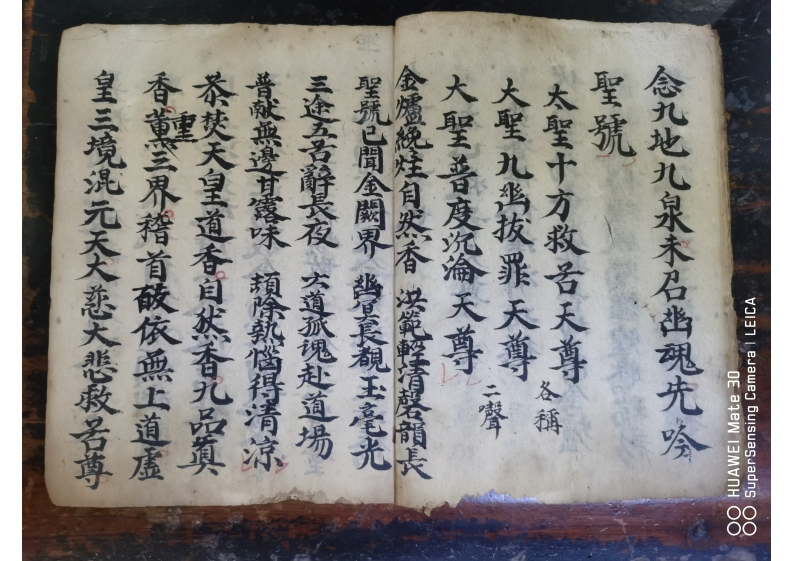 念九地九泉未召幽魂先吟
聖號
太聖十方救苦天尊
大聖九幽拔罪天尊 各稱二聲
大聖普度沉淪天尊
金爐纔炷自然香 洪範輕清磬韻長
聖號已聞金闕界 幽冥長覩玉毫光
三途五苦辭長夜 六道孤魂赴道場
普献無邊甘露味 頓除執惱得清凉
恭焚天皇道香自然香九品真
香薰三界稽首皈依無上道虛
皇三境混元天大慈大悲救苦尊
HUAWEI Mate 30
SuperSensing Camera | LEICA